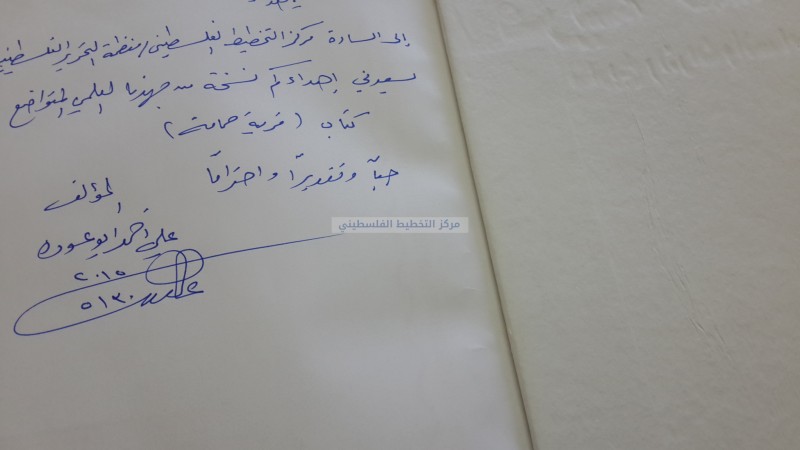 إلى السادة مركز التخطيط الفلسطيني / منظمة التحرير الفلسطينية
يسعدني إهداءكم نسخة من جهدنا العلمي المتواضع
كتاب (قرية حمامة)
حباً وتقديراً واحتراماً
المؤلف
علي أحمد أبو عودة
٢٠١٥
٥/٣٠
مركز التخطيط الفلسطيني